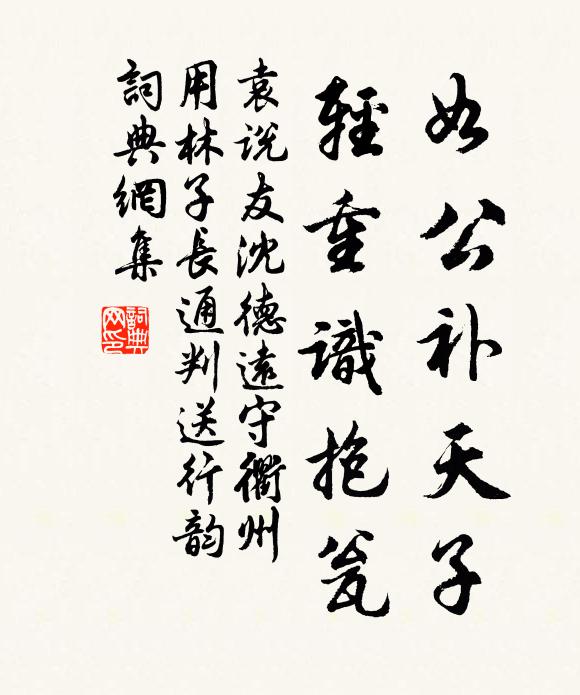 如公补天子
輕重識抱瓮
袁说友沈德遠守衢州
用林子長通判送行韵
詞典網集
詞典网印